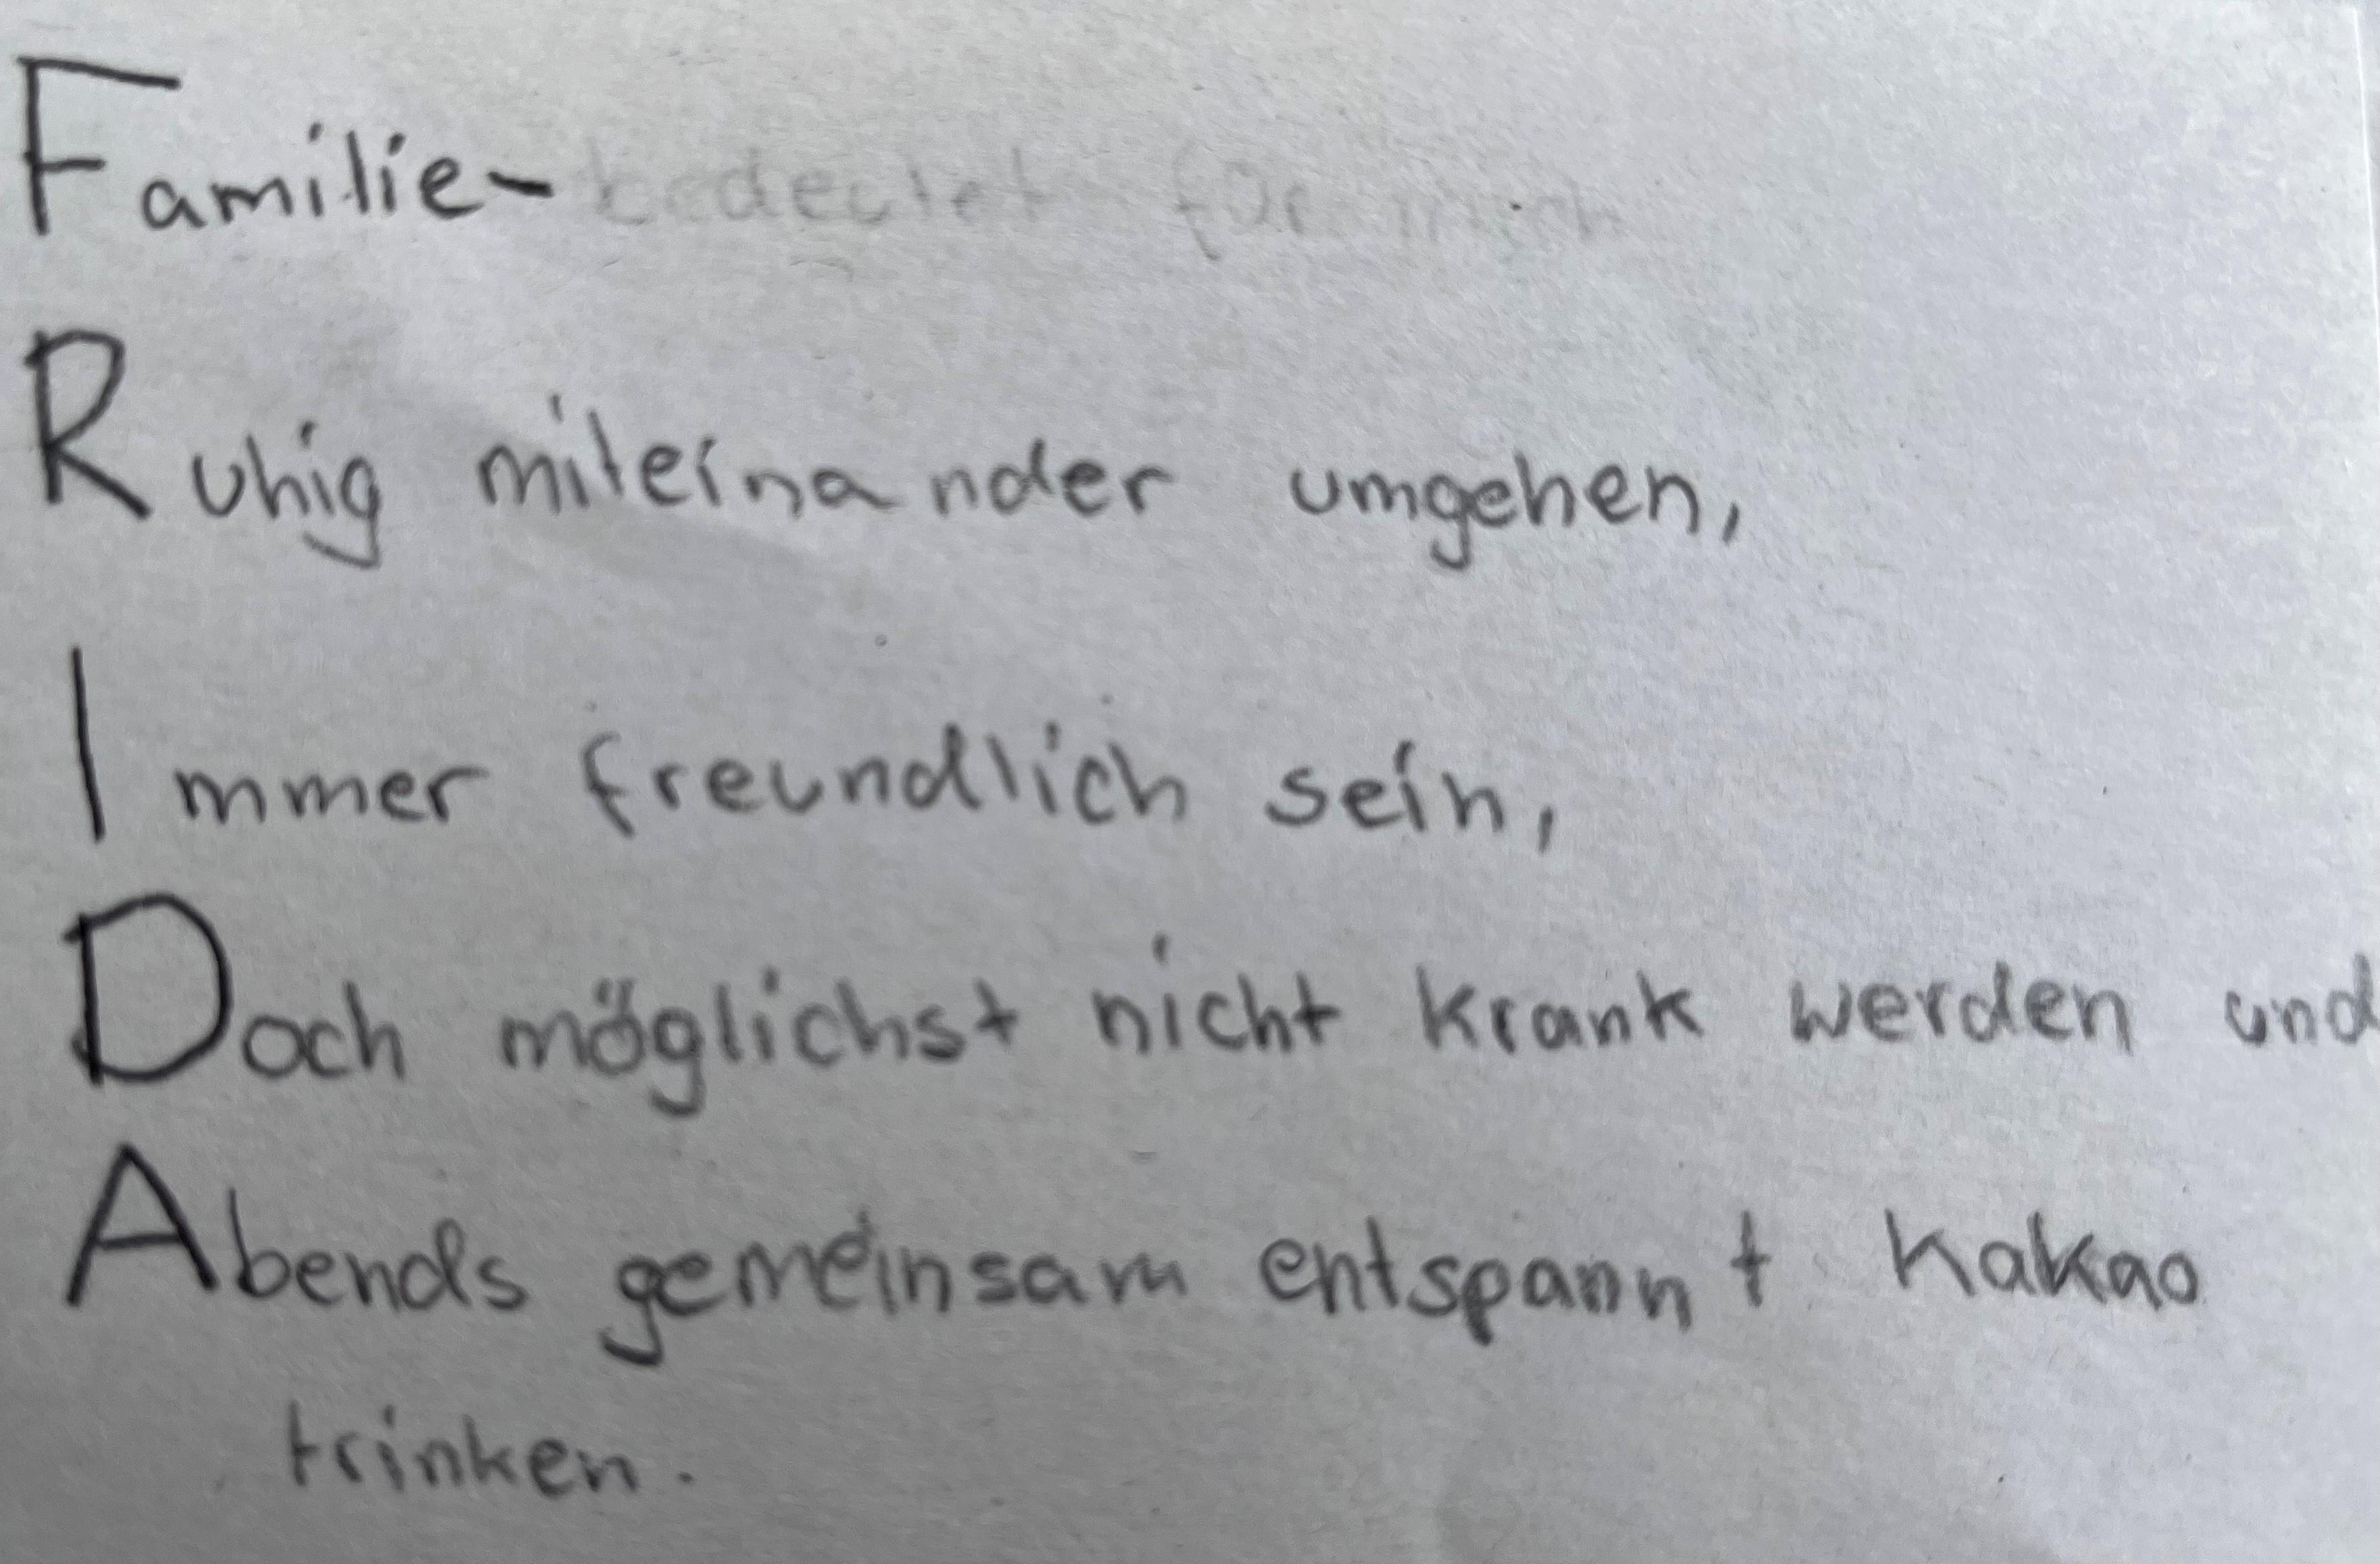 Familie- bedeutet für mich
Ruhig miteinander umgehen,
Immer freundlich sein,
Doch möglichst nicht krank werden und
Abends gemeinsam entspannt Kakao
trinken.